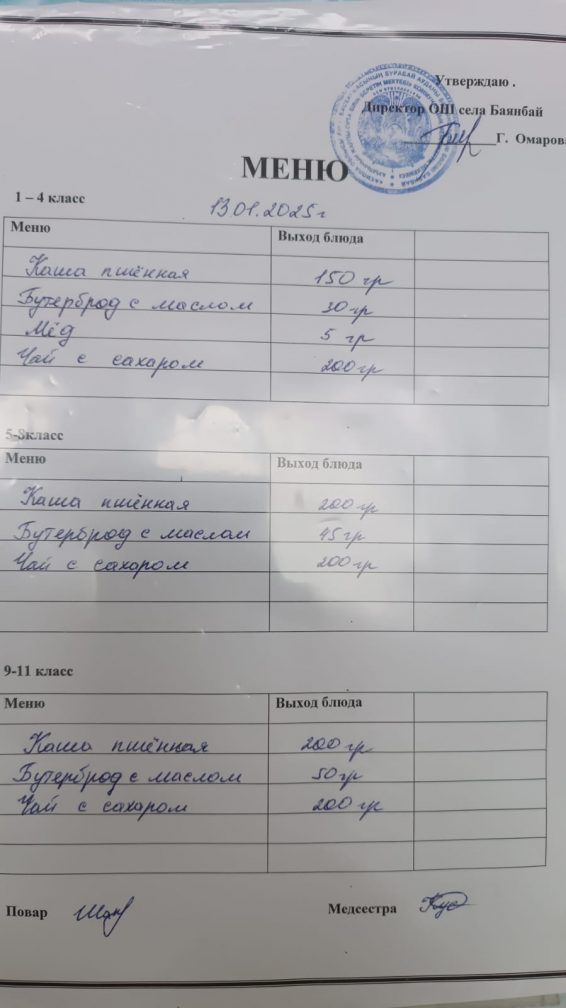 Утверждаю .
Директор ОШ села Баянбай
Г. Омарова
МЕНЮ
1 – 4 класс
13.01.2025г
Меню Выход блюда
Каша пшённая 150 гр
Бутерброд с маслом 30 гр
Мёд 5 гр
Чай с сахаром 200 гр
5-8класс
Меню Выход блюда
Каша пшённая 200 гр
Бутерброд с маслом 45 гр
Чай с сахаром 200 гр
9-11 класс
Меню Выход блюда
Каша пшённая 200 гр
Бутерброд с маслом 50 гр
Чай с сахаром 200 гр
Повар Медсестра